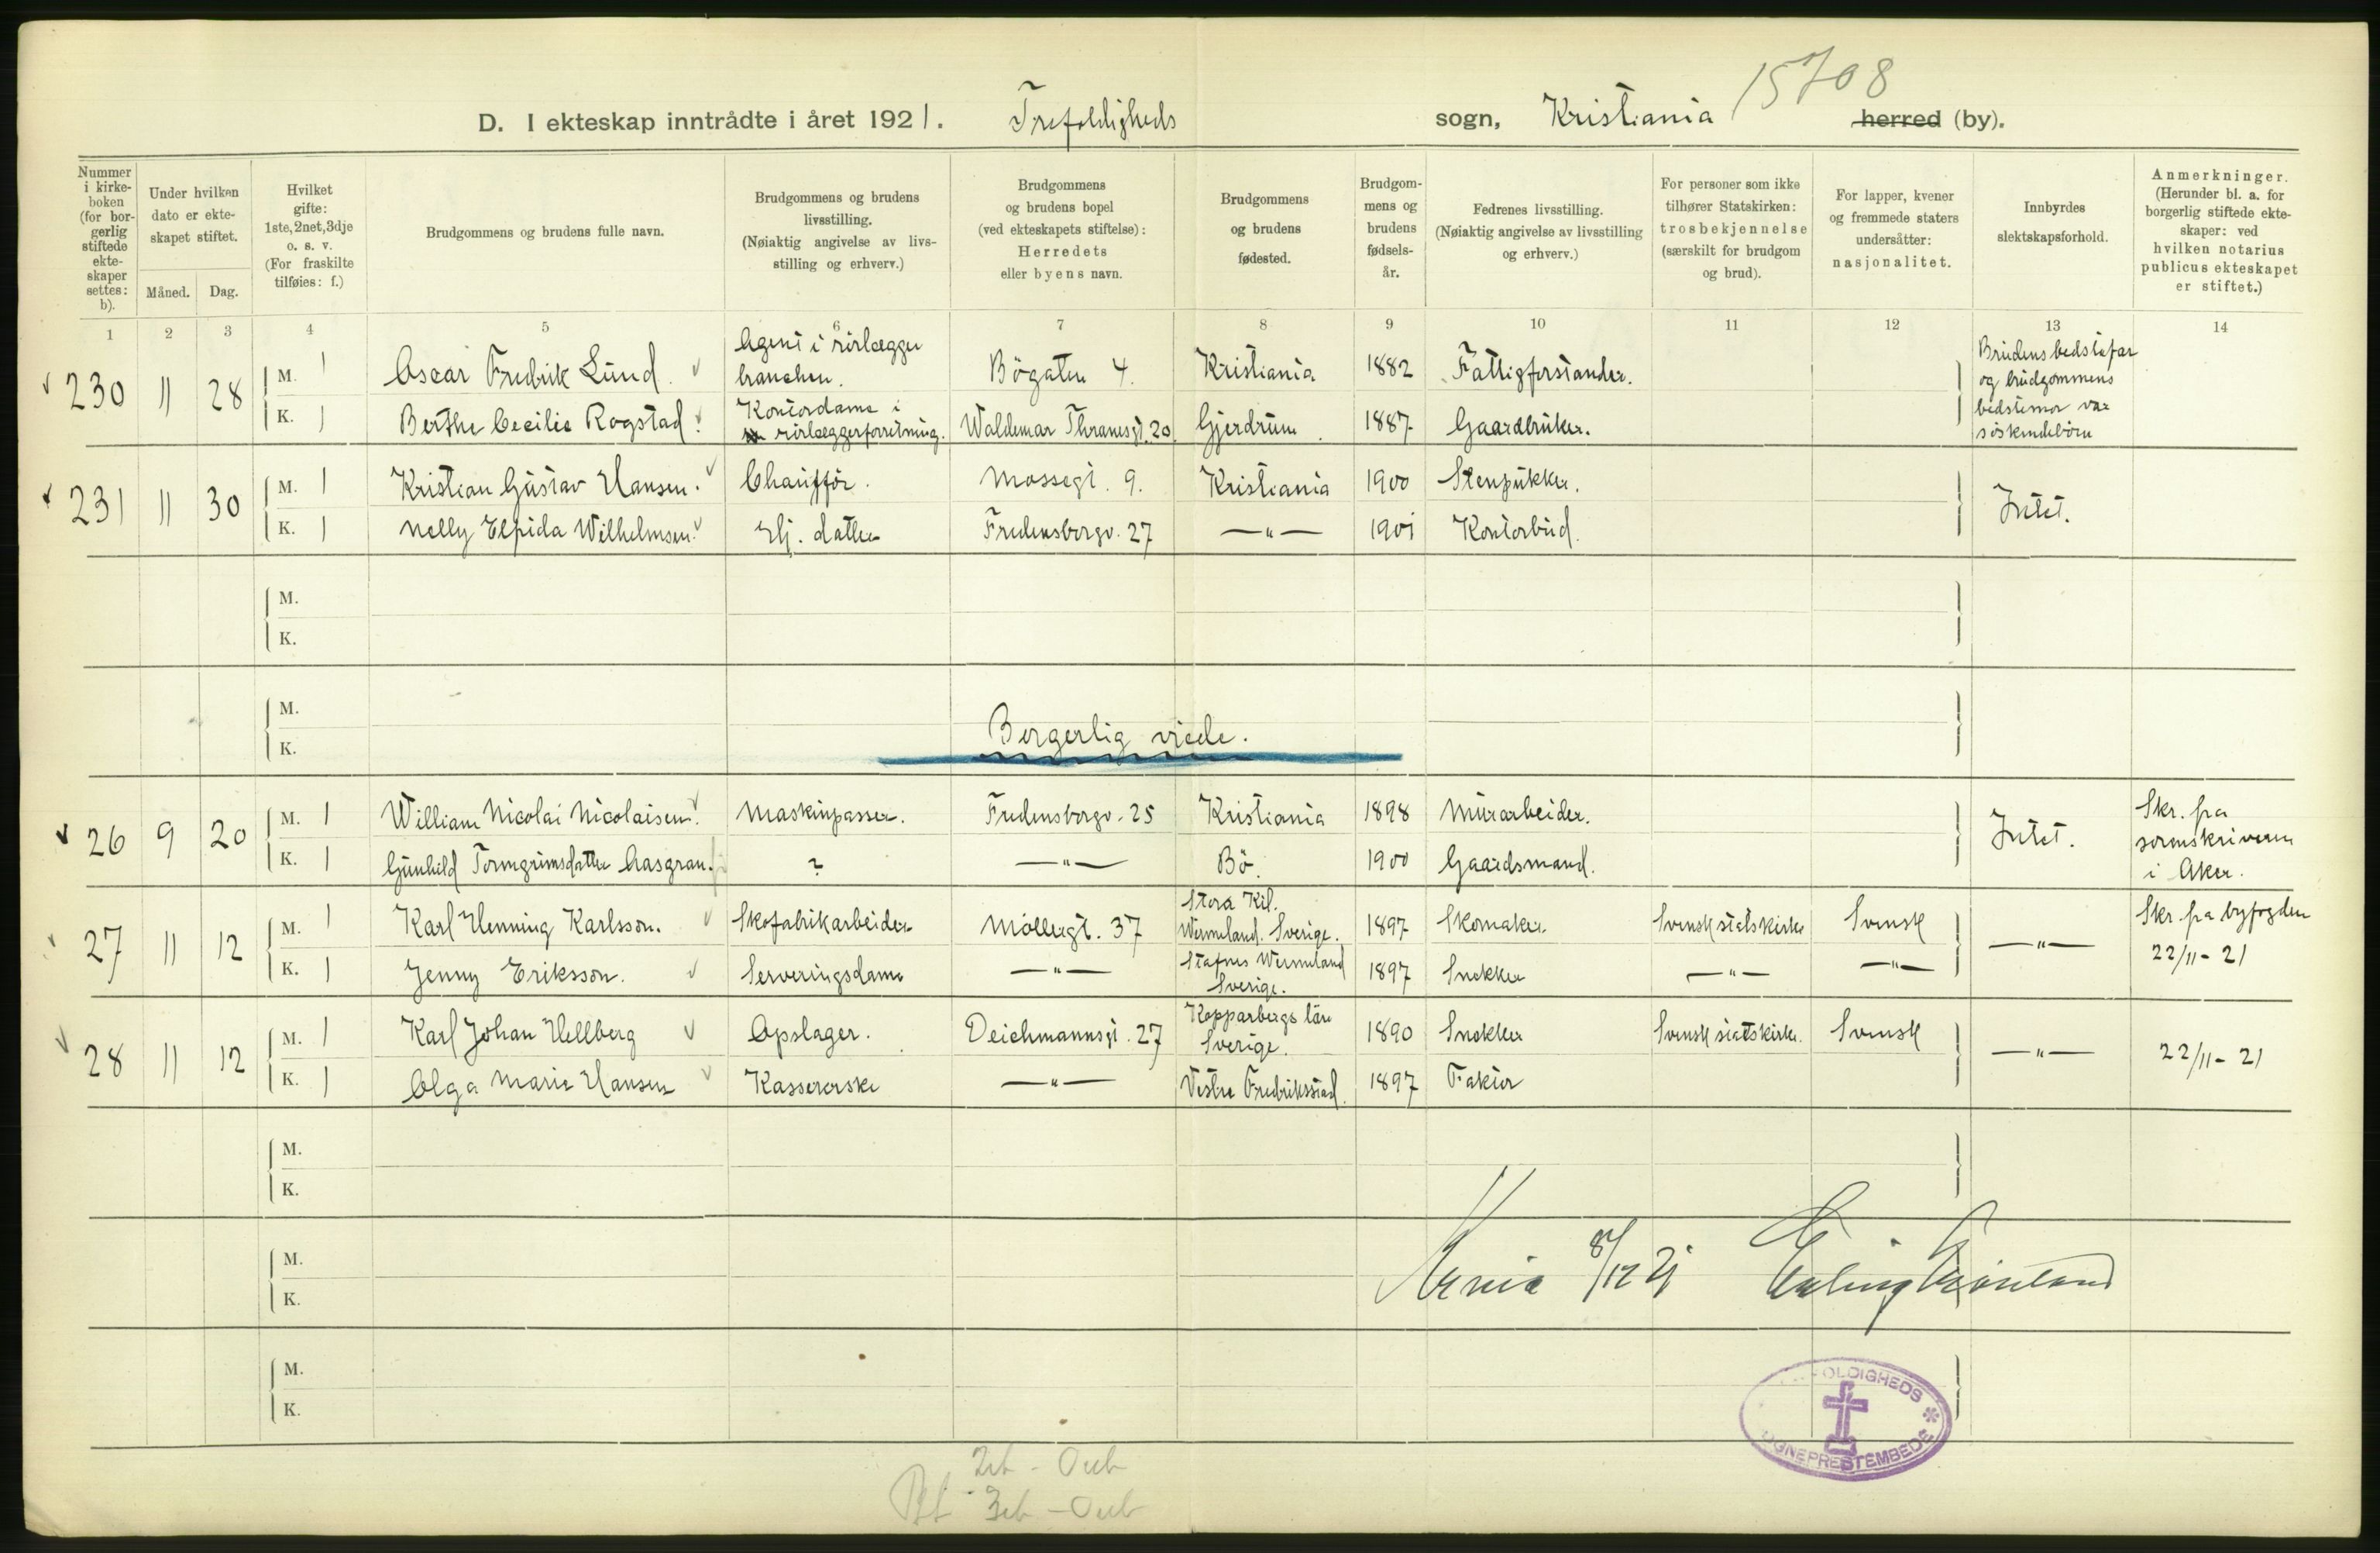 15708
D. I ekteskap inntrådte i året 1921. Trefoldigheds sogn, Kristiania herred (by).
Nummer i kirkeboken (for borgerlig stiftede ekteskaper settes: b).
Under hvilken dato er ekteskapet stiftet.
Måned. Dag.
Hvilket gifte: 1ste, 2net, 3dje o. s. v. (For fraskilte tilføies: f.)
Brudgommens og brudens fulle navn.
Brudgommens og brudens livsstilling. (Nøiaktig angivelse av livsstilling og erhverv.)
Brudgommens og brudens bopel (ved ekteskapets stiftelse): Herredets eller byens navn.
Brudgommens og brudens fødested.
Brudgommens og brudens fødselsår.
Fedrenes livsstilling. (Nøiaktig angivelse av livsstilling og erhverv.)
For personer som ikke tilhører Statskirken: trosbekjennelse (særskilt for brudgom og brud).
For lapper, kvener og fremmede staters undersåtter: nasjonalitet.
Innbyrdes slektskapsforhold.
Anmerkninger. (Herunder bl. a. for borgerlig stiftede ekteskaper: ved hvilken notarius publicus ekteskapet er stiftet.)
1 2 3 4 5 6 7 8 9 10 11 12 13 14
230 11 28
M. 1 Oscar Fredrik Lund. Agent i rörlægger branchen. Bögaten 4. Kristiania 1882 Fattigforstander.
K. 1 Berthe Cecilie Rogstad. Kontordame i rörlæggerforretning. Waldemar Thranesgt. 20. Gjerdrum. 1887 Gaardbruker.
Brudens bedstefar og brudgommens bedstemor var söskendebörn
231 11 30
M. 1 Kristian Gustav Hansen. Chauffför. Mossegt. 9. Kristiania 1900 Stenpukker.
K. 1 Nelly Elpida Wilhelmsen. Hj. datter Fredensborgv. 27 —"— 1901 Kontorbud.
Intet.
M.
K.
M.
K.
Borgerlig viede.
26 9 20
M. 1 William Nicolai Nicolaisen. Maskinpasser. Fredensborgv. 25 Kristiania 1898 Murarbeider.
K. 1 Gunhild Tormgrimsdatter Aasgran. ? —"— Bö. 1900 Gaardsmand.
Intet.
Skr. fra sorenskriveren i Aker.
27 11 12
M. 1 Karl Henning Karlsson. Skofabrikarbeider Möllergt. 37 Stora Kil. Wermeland. Sverige. 1897 Skomaker Svensk statskirke Svensk
K. 1 Jenny Eriksson. Serveringsdame —"— Stafnes Wermeland Sverige. 1897 Snekker —"— —"—
—"—
Skr. fra byfogden 22/11-21
28 11 12
M. 1 Karl Johan Hellberg Opslager. Deichmannsgt. 27 Kopparbergs län Sverige. 1890 Snekker Svensk statskirke. Svensk
K. 1 Olga Marie Hansen Kassererske —"— Vestre Fredriksstad. 1897 Faktor
—"—
22/11-21
M.
K.
M.
K.
Krnia 8/12 21 Erling Grönland
M.
K.
OLDIGHEDS
OGNEPRESTEMBEDE